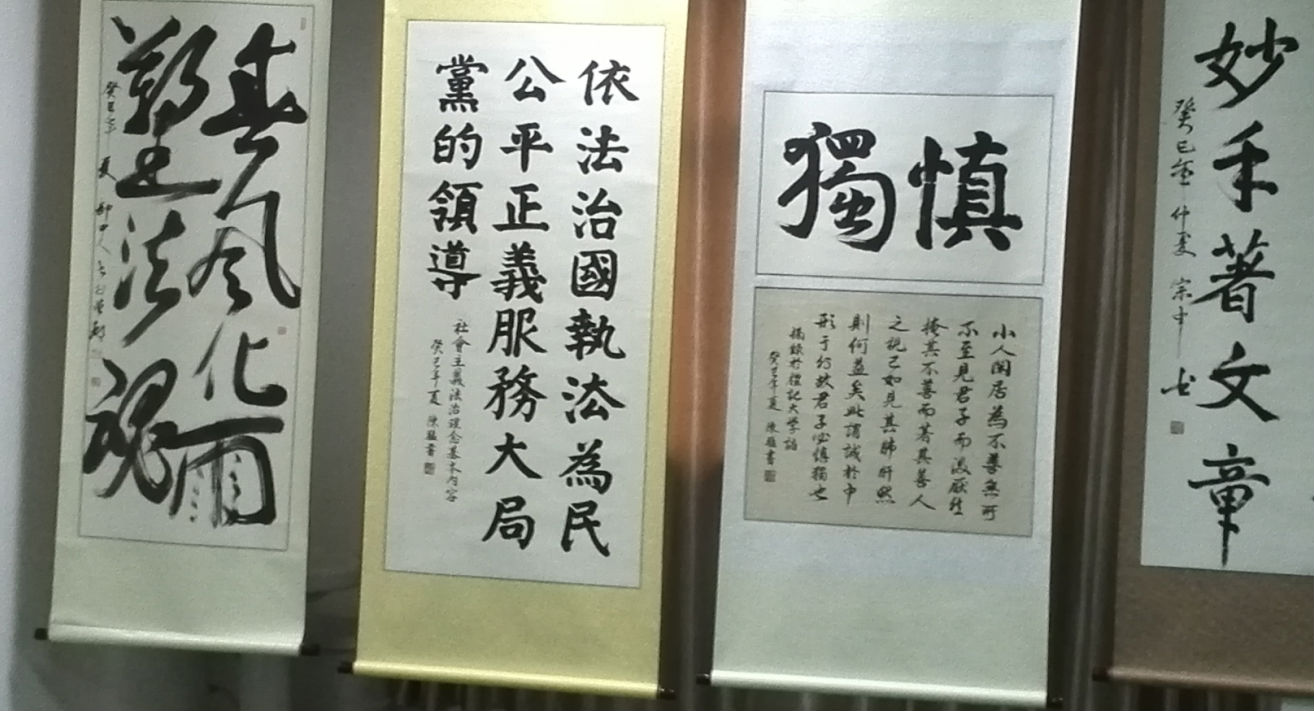 妙手著文章
癸巳年仲夏 宗中
慎獨
小人閑居為不善無所
不至見君子而後厭然
掩其不善而著其善人
之視己如見其肺肝然
則何益矣此謂誠於中
形于外故君子必慎獨也
摘錄於禮記大學語
癸巳年夏 陳雄書
依法治國執法為民
公平正義服務大局
黨的領導
社會主義法治理念基本內容
癸巳年夏 陳猛書
春风化雨
塑法魂
癸巳年夏